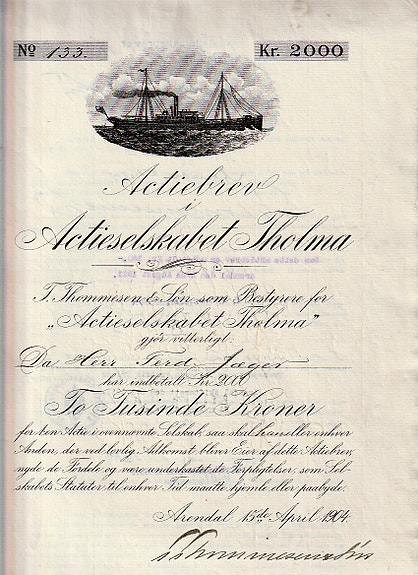 No 133. Kr. 2000
Actiebrev
i
Actieselskabet Tholma
T. Thommesen & Søn som Bestyrere for
„Actieselskabet Tholma"
gjør vitterligt:
Da Herr Ferd. Jager
har indbetalt Kr. 2000
To Tusinde Kroner
for een Actie i ovennævnte Selskab, saa skal han eller enhver
Anden, der ved lovlig Adkomst bliver Eier af dette Actiebrev,
nyde de Fordele og være underkastet de Forpligtelser, som Sel-
skabets Statuter til enhver Tid maatte hjemle eller paabyde.
Arendal 15de April 1904.